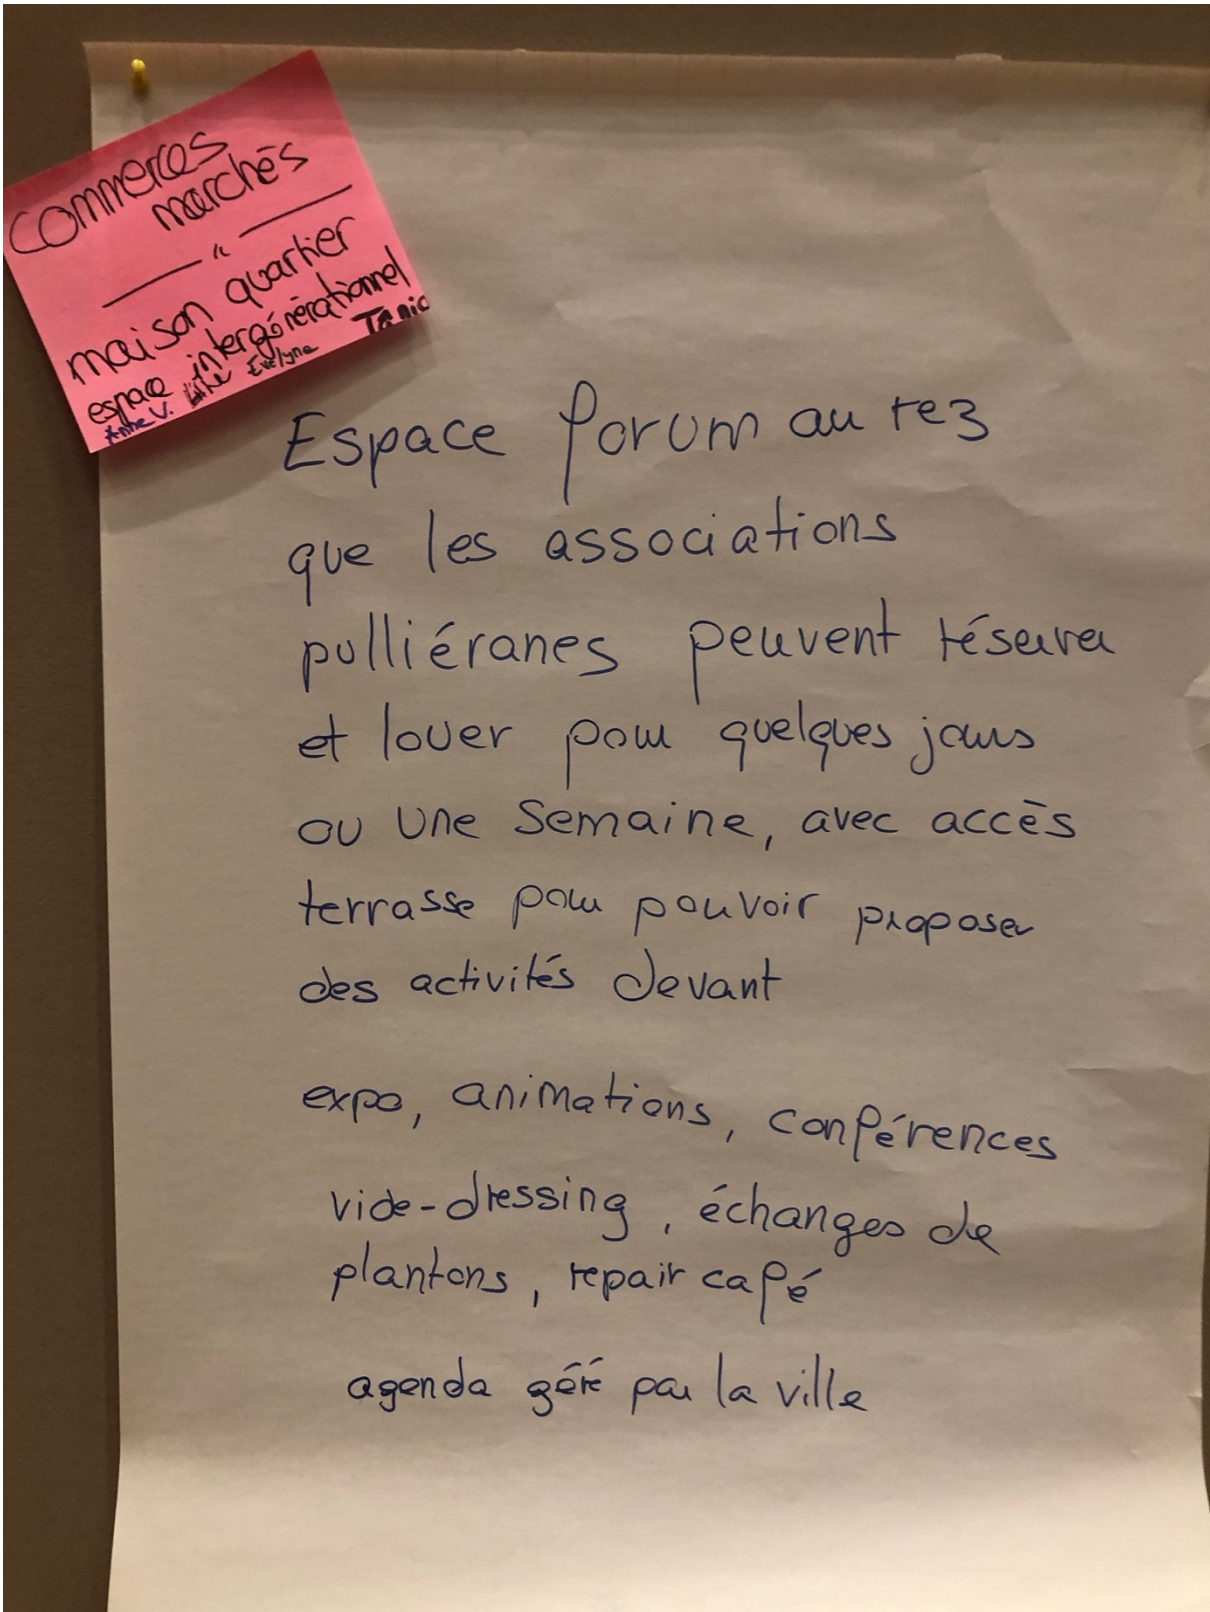 commerces
marchés
— " —
maison quartier
espace intergénérationnel
Anne V. Evelyne
Espace forum au rez
que les associations
pulliéranes peuvent réserver
et louer pour quelques jours
ou une semaine, avec accès
terrasse pour pouvoir proposer
des activités devant
expo, animations, conférences
vide-dressing, échanges de
plantons, repair café
agenda géré par la ville